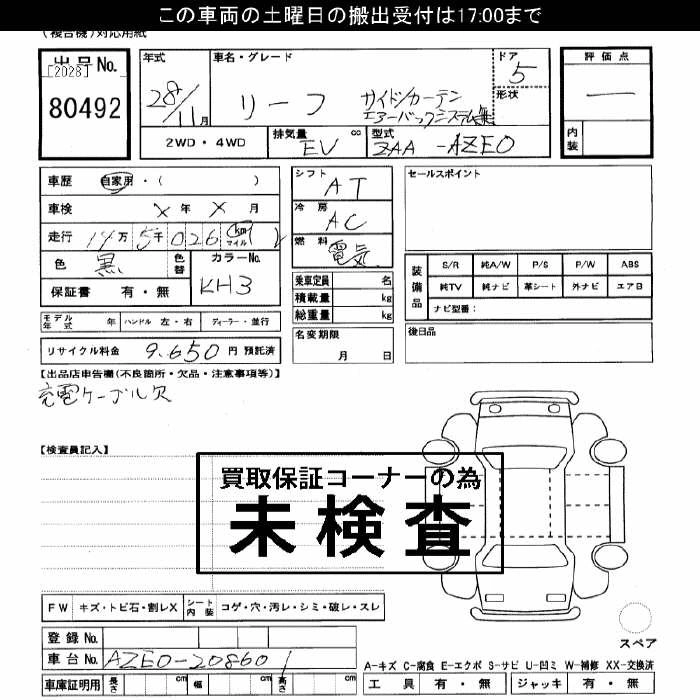 この車両の土曜日の搬出受付は17:00まで
(複合機)対応用紙
出品No.
[2028]
80492
年式
28/11月
車名・グレード
リーフ
サイド/カーテン
エアーバックシステム無
ドア
5
形状
評価点
—
内装
2WD・4WD
排気量
cc
EV
型式
ZAA-AZE0
車歴 自家用・( )
車検 X年 X月
走行 14万5千026 km マイル
色 黒 色替
カラーNo.
KH3
保証書 有・無
モデル年式 年 ハンドル 左・右 ディーラー・並行
リサイクル料金 9.650 円 預託済
シフト
AT
冷房
AC
燃料
電気
乗車定員 名
積載量 kg
総重量 kg
名変期限
月 日
セールスポイント
装備品
S/R 純A/W P/S P/W ABS
純TV 純ナビ 革シート 外ナビ エアB
ナビ型番:
後日品
【出品店申告欄(不良箇所・欠品・注意事項等)】
充電ケーブル欠
【検査員記入】
買取保証コーナーの為
未検査
FW キズ・トビ石・割レX シート内装 コゲ・穴・汚レ・シミ・破レ・スレ
登録No.
車台No. AZE0-208601
車庫証明用 長さ cm 幅 cm 高さ cm
スペア
A-キズ C-腐食 E-エクボ S-サビ U-凹ミ W-補修 XX-交換済
工具 有・無 ジャッキ 有・無